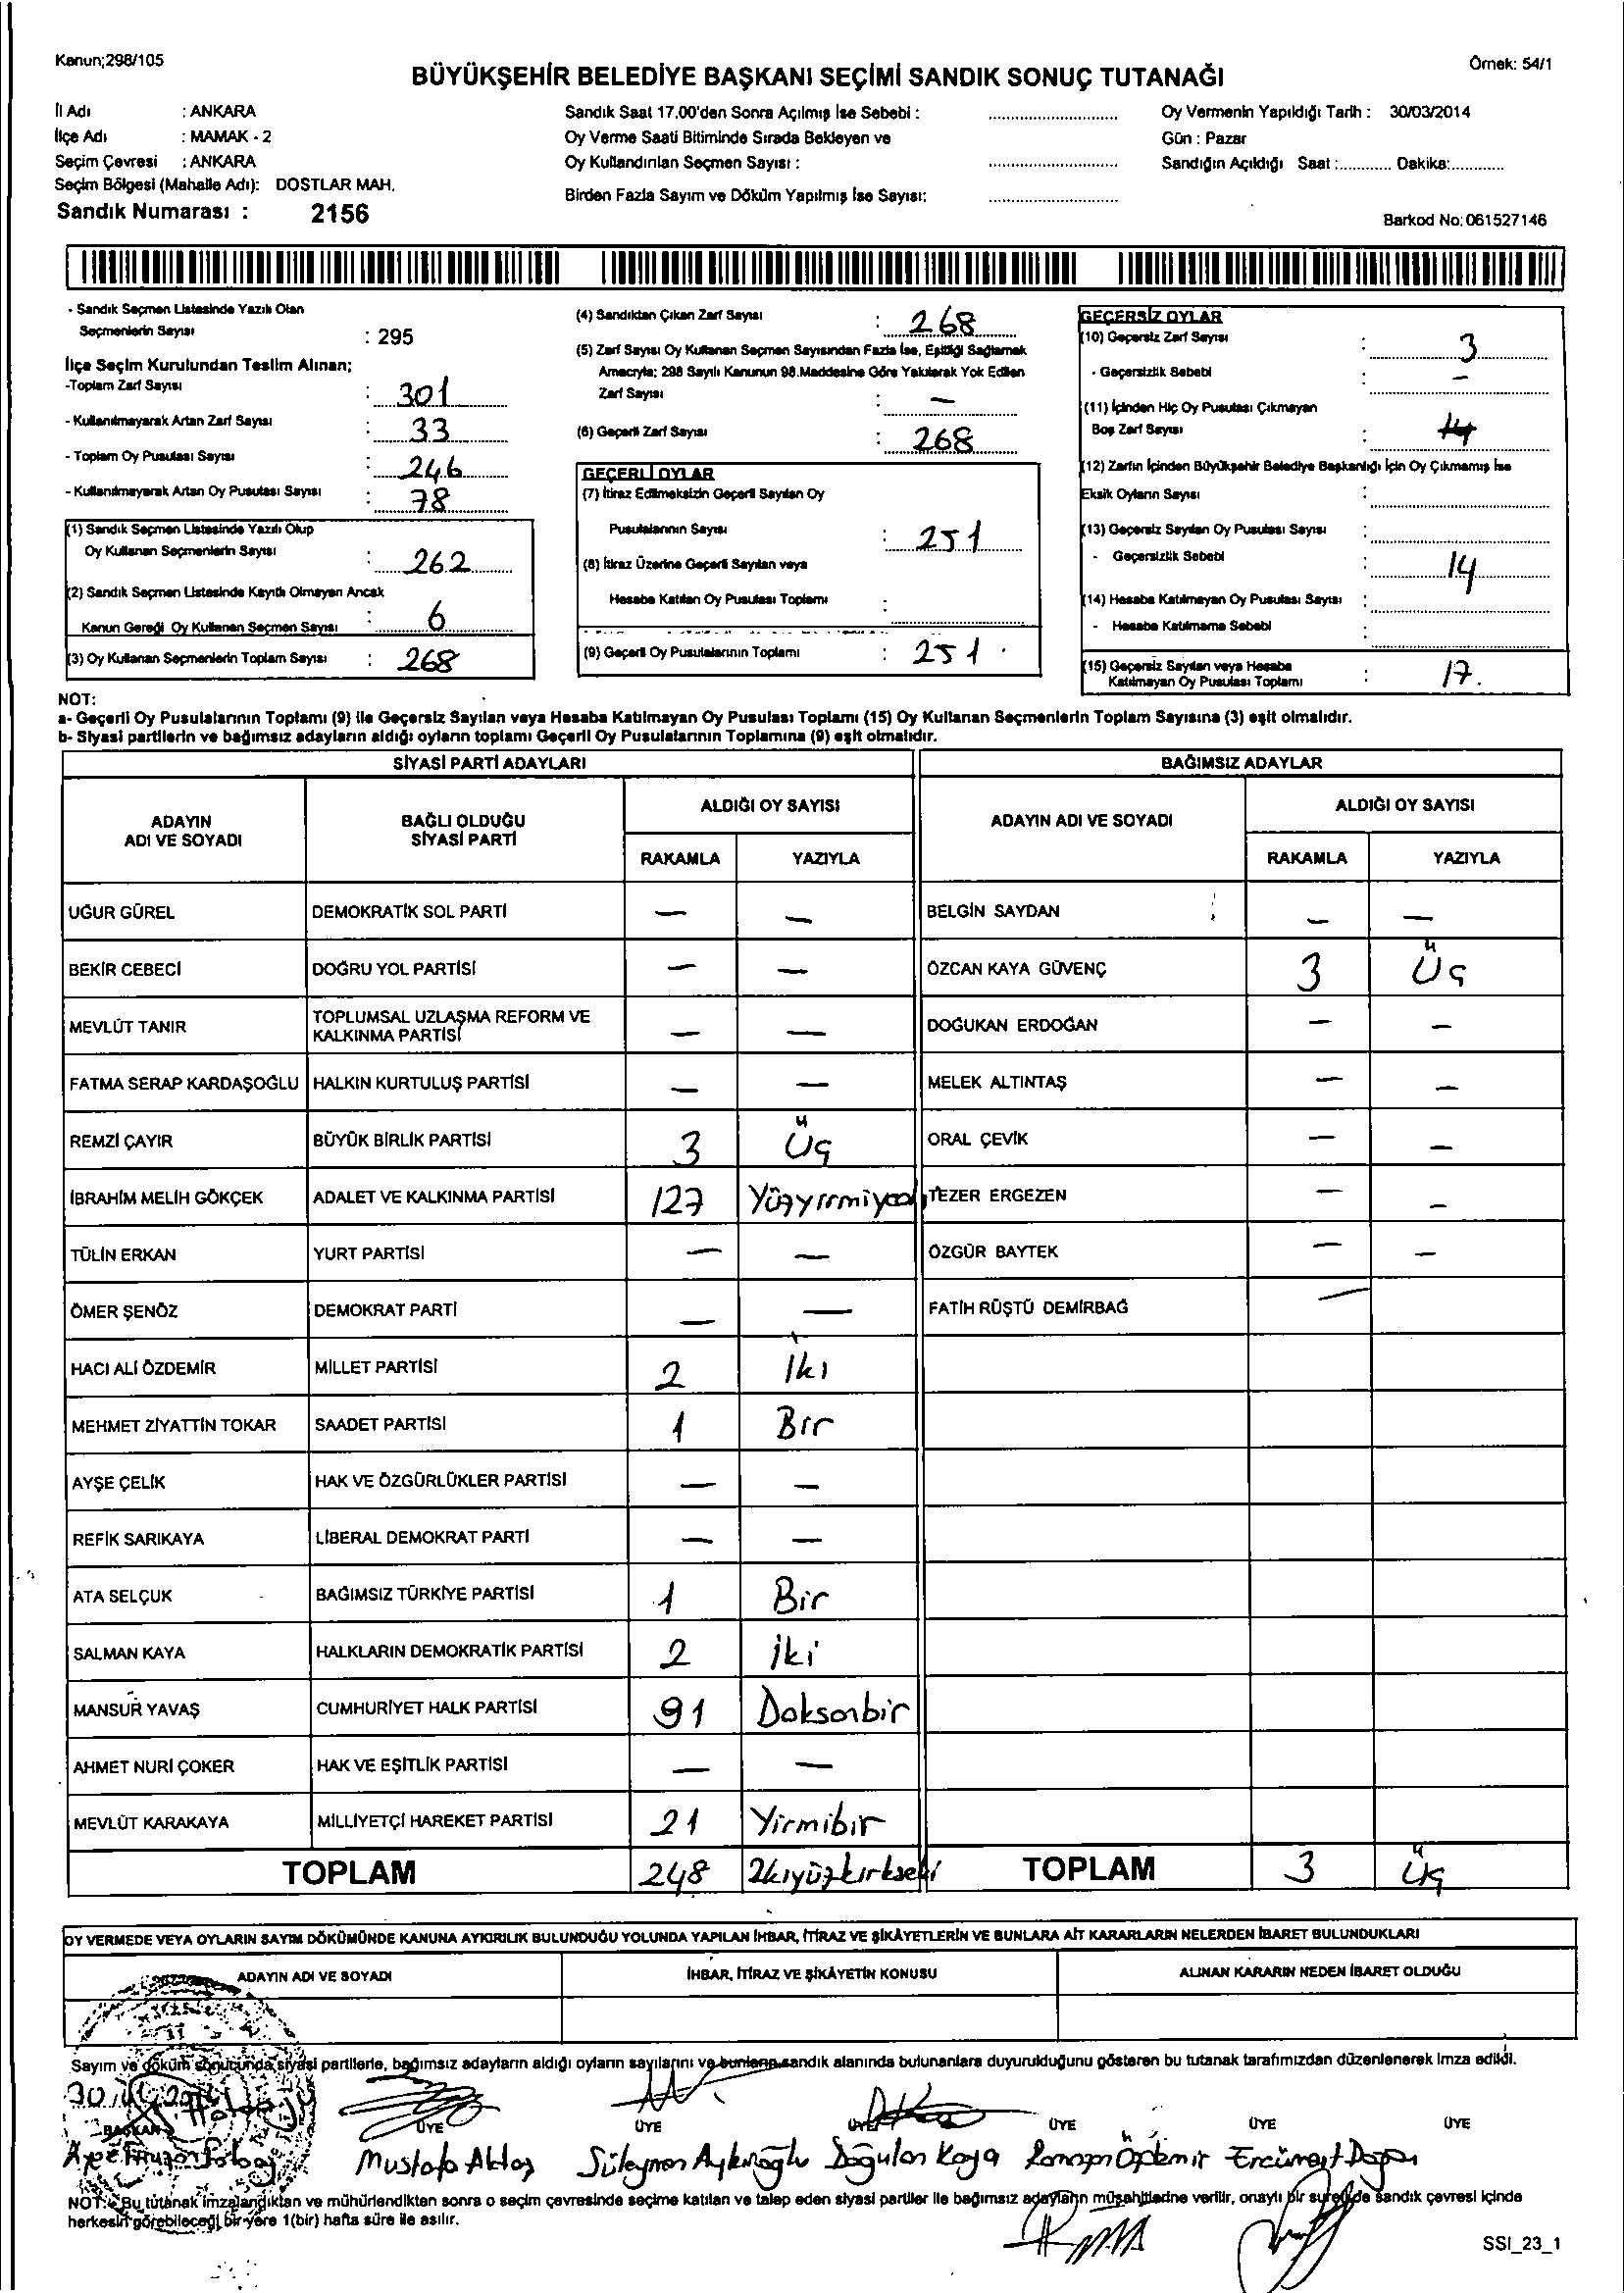 Kanun;298/105
Örnek: 54/1
BÜYÜKŞEHİR BELEDİYE BAŞKANI SEÇİMİ SANDIK SONUÇ TUTANAĞI
İl Adı : ANKARA
İlçe Adı : MAMAK - 2
Seçim Çevresi : ANKARA
Seçim Bölgesi (Mahalle Adı): DOSTLAR MAH.
Sandık Numarası : 2156
Sandık Saat 17.00'den Sonra Açılmış İse Sebebi :
Oy Verme Saati Bitiminde Sırada Bekleyen ve
Oy Kullandırılan Seçmen Sayısı :
Birden Fazla Sayım ve Döküm Yapılmış İse Sayısı:
Oy Vermenin Yapıldığı Tarih : 30/03/2014
Gün : Pazar
Sandığın Açıldığı Saat :............ Dakika:............
Barkod No: 061527146
- Sandık Seçmen Listesinde Yazılı Olan
Seçmenlerin Sayısı : 295
İlçe Seçim Kurulundan Teslim Alınan;
-Toplam Zarf Sayısı : 301
- Kullanılmayarak Artan Zarf Sayısı : 33
- Toplam Oy Pusulası Sayısı : 246
- Kullanılmayarak Artan Oy Pusulası Sayısı : 78
(1) Sandık Seçmen Listesinde Yazılı Olup
Oy Kullanan Seçmenlerin Sayısı : 262
(2) Sandık Seçmen Listesinde Kayıtlı Olmayan Ancak
Kanun Gereği Oy Kullanan Seçmen Sayısı : 6
(3) Oy Kullanan Seçmenlerin Toplam Sayısı : 268
(4) Sandıktan Çıkan Zarf Sayısı : 268
(5) Zarf Sayısı Oy Kullanan Seçmen Sayısından Fazla İse, Eşitliği Sağlamak
Amacıyla; 298 Sayılı Kanunun 98.Maddesine Göre Yakılarak Yok Edilen
Zarf Sayısı : —
(6) Geçerli Zarf Sayısı : 268
GEÇERLİ OYLAR
(7) İtiraz Edilmeksizin Geçerli Sayılan Oy
Pusulalarının Sayısı : 251
(8) İtiraz Üzerine Geçerli Sayılan veya
Hesaba Katılan Oy Pusulası Toplamı :
(9) Geçerli Oy Pusulalarının Toplamı : 251
GEÇERSİZ OYLAR
(10) Geçersiz Zarf Sayısı : 3
- Geçersizlik Sebebi : —
(11) İçinden Hiç Oy Pusulası Çıkmayan
Boş Zarf Sayısı : 14
(12) Zarfın İçinden Büyükşehir Belediye Başkanlığı İçin Oy Çıkmamış İse
Eksik Oyların Sayısı :
(13) Geçersiz Sayılan Oy Pusulası Sayısı :
- Geçersizlik Sebebi : 14
(14) Hesaba Katılmayan Oy Pusulası Sayısı :
- Hesaba Katılmama Sebebi :
(15) Geçersiz Sayılan veya Hesaba
Katılmayan Oy Pusulası Toplamı : 17.
NOT:
a- Geçerli Oy Pusulalarının Toplamı (9) ile Geçersiz Sayılan veya Hesaba Katılmayan Oy Pusulası Toplamı (15) Oy Kullanan Seçmenlerin Toplam Sayısına (3) eşit olmalıdır.
b- Siyasi partilerin ve bağımsız adayların aldığı oyların toplamı Geçerli Oy Pusulalarının Toplamına (9) eşit olmalıdır.
SİYASİ PARTİ ADAYLARI BAĞIMSIZ ADAYLAR
ADAYIN ADI VE SOYADI BAĞLI OLDUĞU SİYASİ PARTİ ALDIĞI OY SAYISI ADAYIN ADI VE SOYADI ALDIĞI OY SAYISI
RAKAMLA YAZIYLA RAKAMLA YAZIYLA
UĞUR GÜREL DEMOKRATİK SOL PARTİ — — BELGİN SAYDAN — —
BEKİR CEBECİ DOĞRU YOL PARTİSİ — — ÖZCAN KAYA GÜVENÇ 3 Üç
MEVLÜT TANIR TOPLUMSAL UZLAŞMA REFORM VE KALKINMA PARTİSİ — — DOĞUKAN ERDOĞAN — —
FATMA SERAP KARDAŞOĞLU HALKIN KURTULUŞ PARTİSİ — — MELEK ALTINTAŞ — —
REMZİ ÇAYIR BÜYÜK BİRLİK PARTİSİ 3 Üç ORAL ÇEVİK — —
İBRAHİM MELİH GÖKÇEK ADALET VE KALKINMA PARTİSİ 127 TEZER ERGEZEN — —
TÜLİN ERKAN YURT PARTİSİ — — ÖZGÜR BAYTEK — —
ÖMER ŞENÖZ DEMOKRAT PARTİ — — FATİH RÜŞTÜ DEMİRBAĞ —
HACI ALİ ÖZDEMİR MİLLET PARTİSİ 2 İki
MEHMET ZİYATTİN TOKAR SAADET PARTİSİ 1 Bir
AYŞE ÇELİK HAK VE ÖZGÜRLÜKLER PARTİSİ — —
REFİK SARIKAYA LİBERAL DEMOKRAT PARTİ — —
ATA SELÇUK BAĞIMSIZ TÜRKİYE PARTİSİ 1 Bir
SALMAN KAYA HALKLARIN DEMOKRATİK PARTİSİ 2 iki
MANSUR YAVAŞ CUMHURİYET HALK PARTİSİ 91 Doksanbir
AHMET NURİ ÇOKER HAK VE EŞİTLİK PARTİSİ — —
MEVLÜT KARAKAYA MİLLİYETÇİ HAREKET PARTİSİ 21 Yirmibir
TOPLAM 248 TOPLAM 3 Üç
OY VERMEDE VEYA OYLARIN SAYIM DÖKÜMÜNDE KANUNA AYKIRILIK BULUNDUĞU YOLUNDA YAPILAN İHBAR, İTİRAZ VE ŞİKÂYETLERİN VE BUNLARA AİT KARARLARIN NELERDEN İBARET BULUNDUKLARI
ADAYIN ADI VE SOYADI İHBAR, İTİRAZ VE ŞİKÂYETİN KONUSU ALINAN KARARIN NEDEN İBARET OLDUĞU
Sayım ve döküm sonucunda siyasi partilerle, bağımsız adayların aldığı oyların sayılarını ve bunların sandık alanında bulunanlara duyurulduğunu gösteren bu tutanak tarafımızdan düzenlenerek imza edildi.
BAŞKAN ÜYE ÜYE ÜYE ÜYE ÜYE ÜYE
Mustafa Aktaş Süleyman Doğukan Kaya Ramazan Özdemir Ercüment
NOT: Bu tutanak imzalandıktan ve mühürlendikten sonra o seçim çevresinde seçime katılan ve talep eden siyasi partiler ile bağımsız adayların müşahitlerine verilir, onaylı bir sureti de sandık çevresi içinde
herkesin görebileceği bir yere 1(bir) hafta süre ile asılır.
SSI_23_1